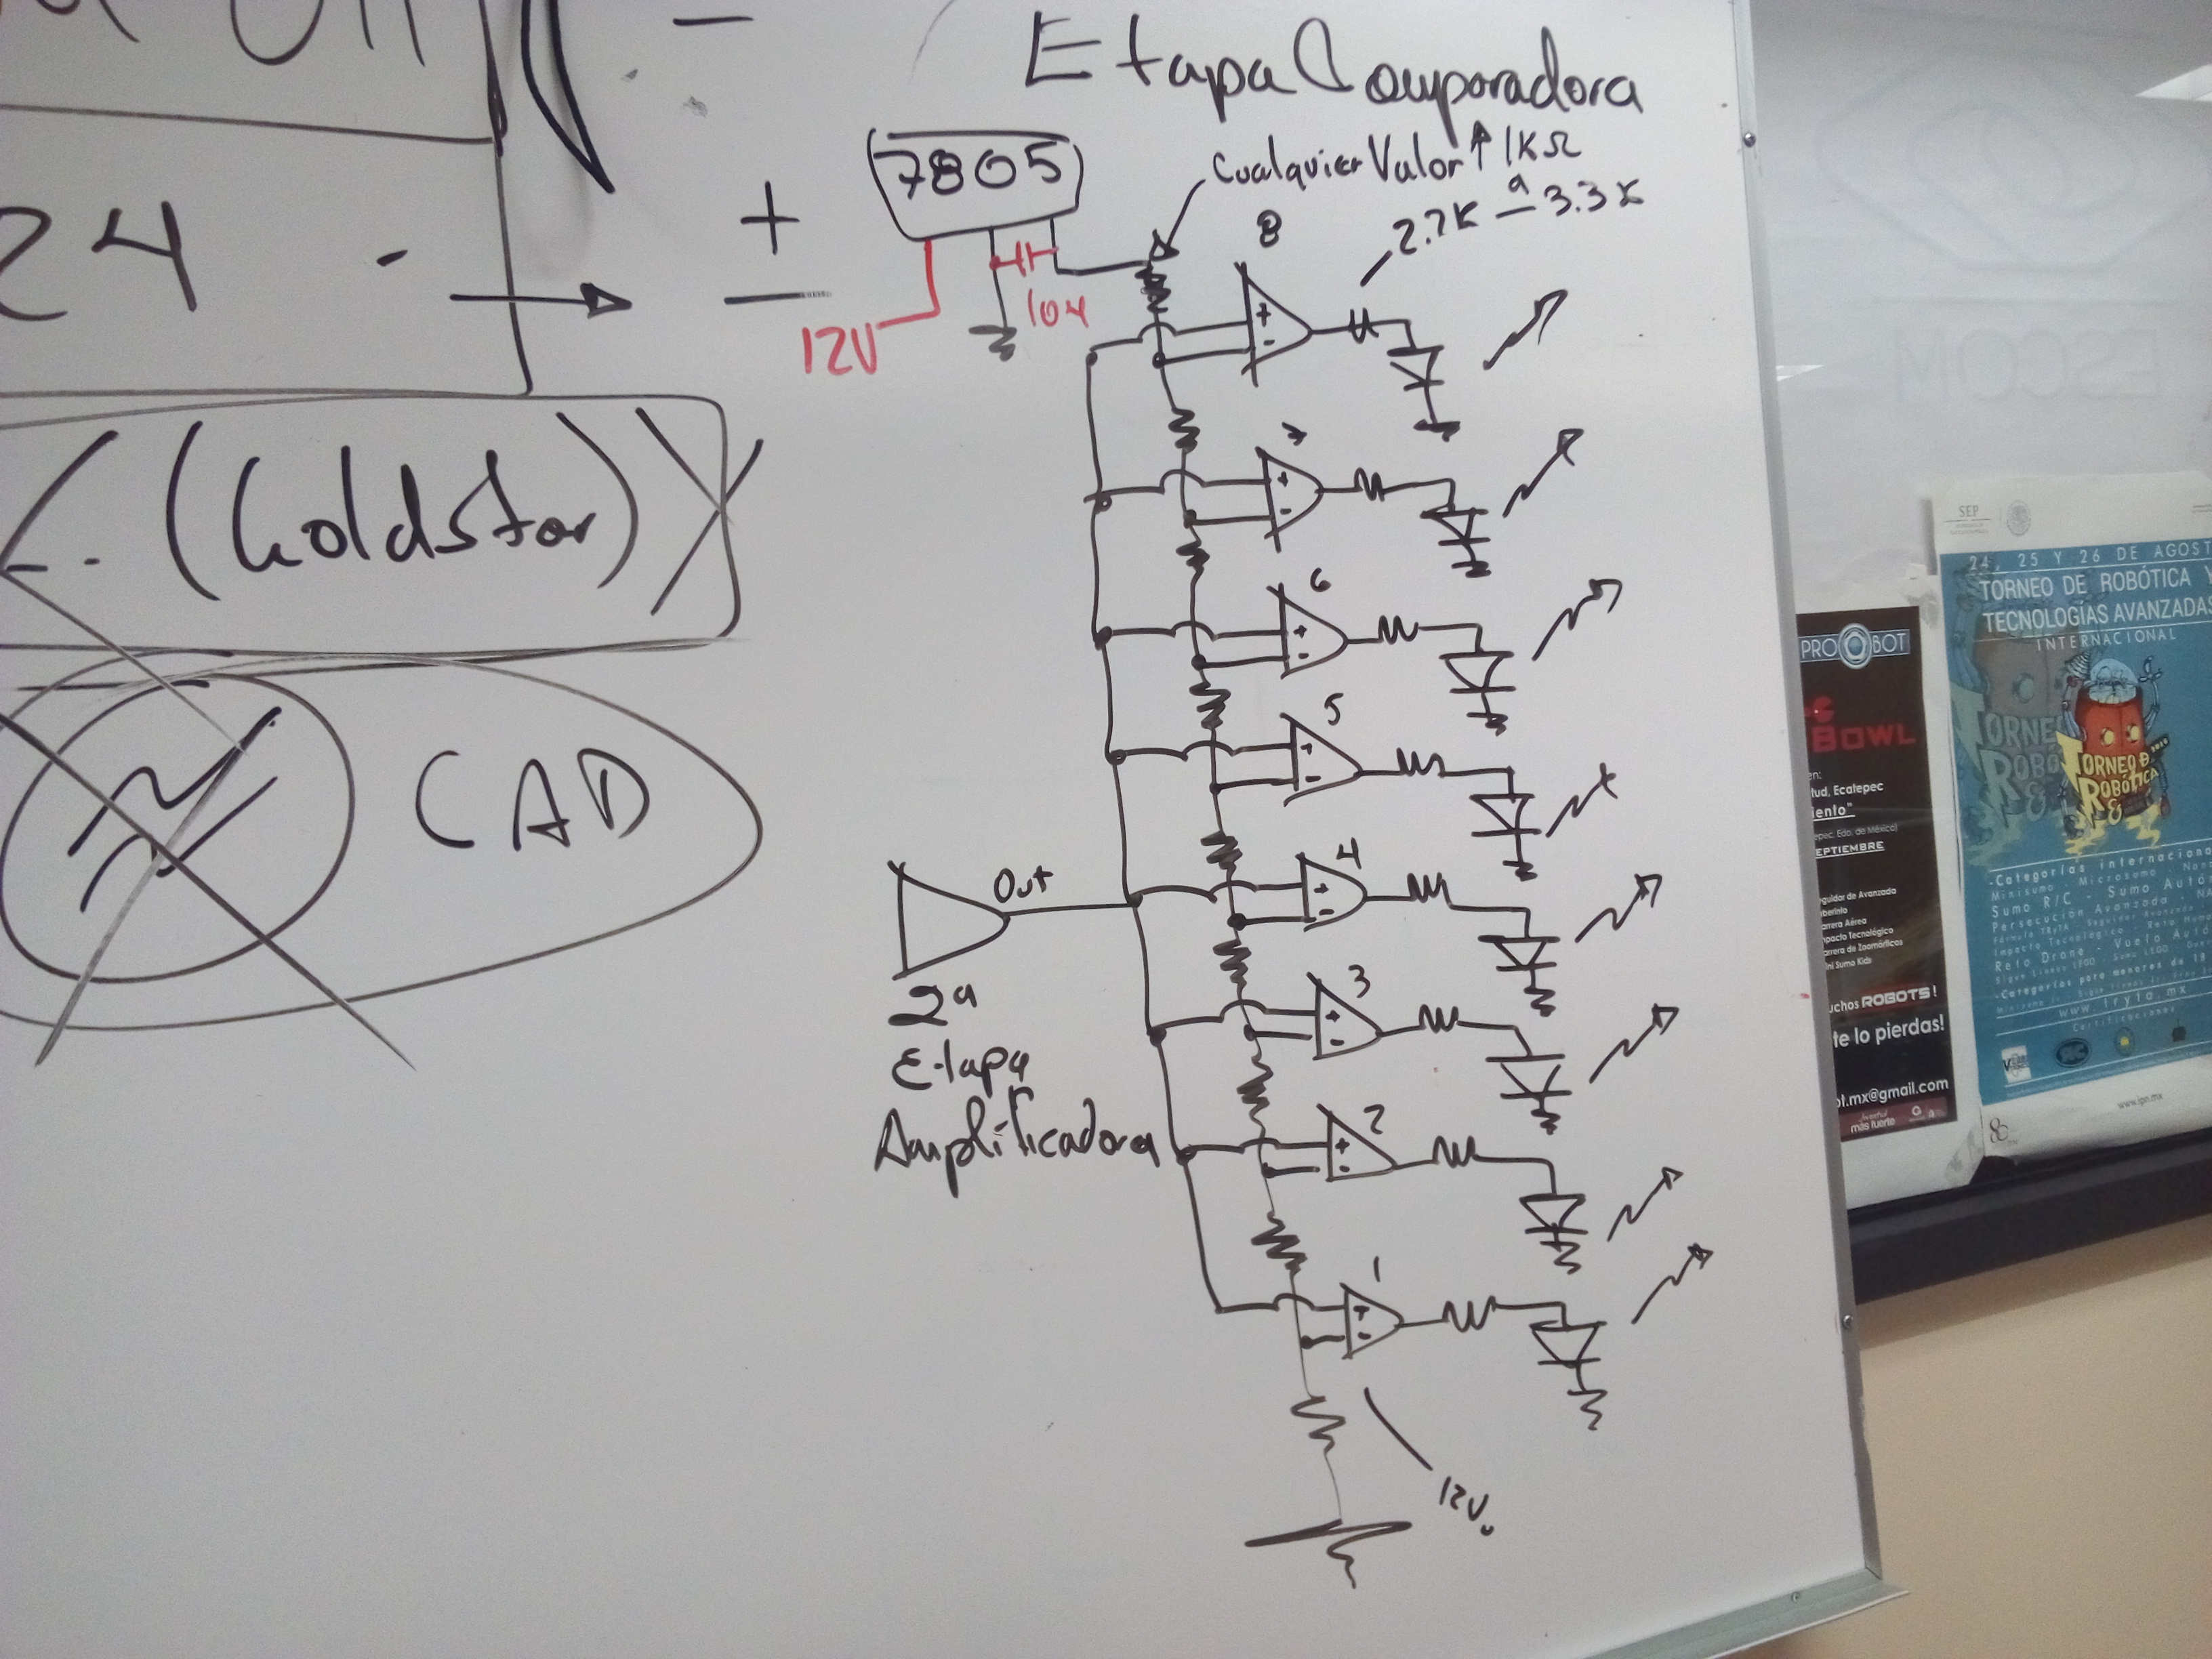 24 -
+
-
(Goldstar)
CAD
Etapa Comparadora
7805
Cualquier Valor ↑ 1KΩ
2.7K a 3.3K
12V
104
8
7
6
5
4
3
2
1
+
-
+
-
+
-
+
-
+
-
+
-
+
-
+
-
Out
2a
Etapa
Amplificadora
12V.
ESCOM
PROBOT
BOWL
tud, Ecatepec
iento"
epec, Edo. de México)
EPTIEMBRE
guidor de Avanzada
aberinto
arrera Aérea
mpacto Tecnológico
arrera de Zoomórficos
ini Sumo Kids
uchos ROBOTS!
te lo pierdas!
ot.mx@gmail.com
más fuerte
SEP
24, 25 Y 26 DE AGOST
TORNEO DE ROBÓTICA Y
TECNOLOGÍAS AVANZADAS
INTERNACIONAL
TORNEO D
ROBÓTICA
&
-Categorías internaciona
Minisumo - Microsumo
Sumo R/C - Sumo Autó
Persecución Avanzada
Impacto Tecnológico - Reto
Reto Drone - Vuelo Autó
-Categorías para menores de 18
Certificaciones
www.ipn.mx
80